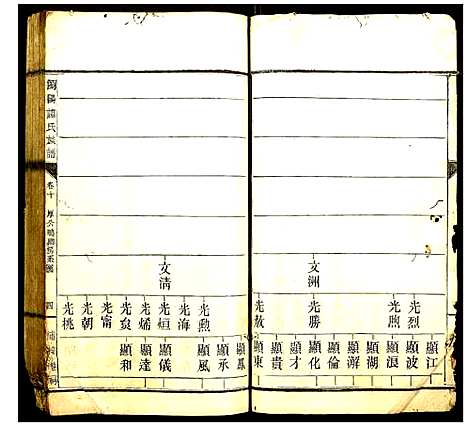 文洲
光烈
光煦
光勝
光放
顯江
顯波
顯浪
顯湖
顯澥
顯倫
顯化
顯才
顯貴
顯東
氏族譜
卷十
四
文清
光勲
光海
光桓
光烯
光奐
光甯
光朝
光桃
顯鳳
顯承
顯風
顯儀
顯達
顯和